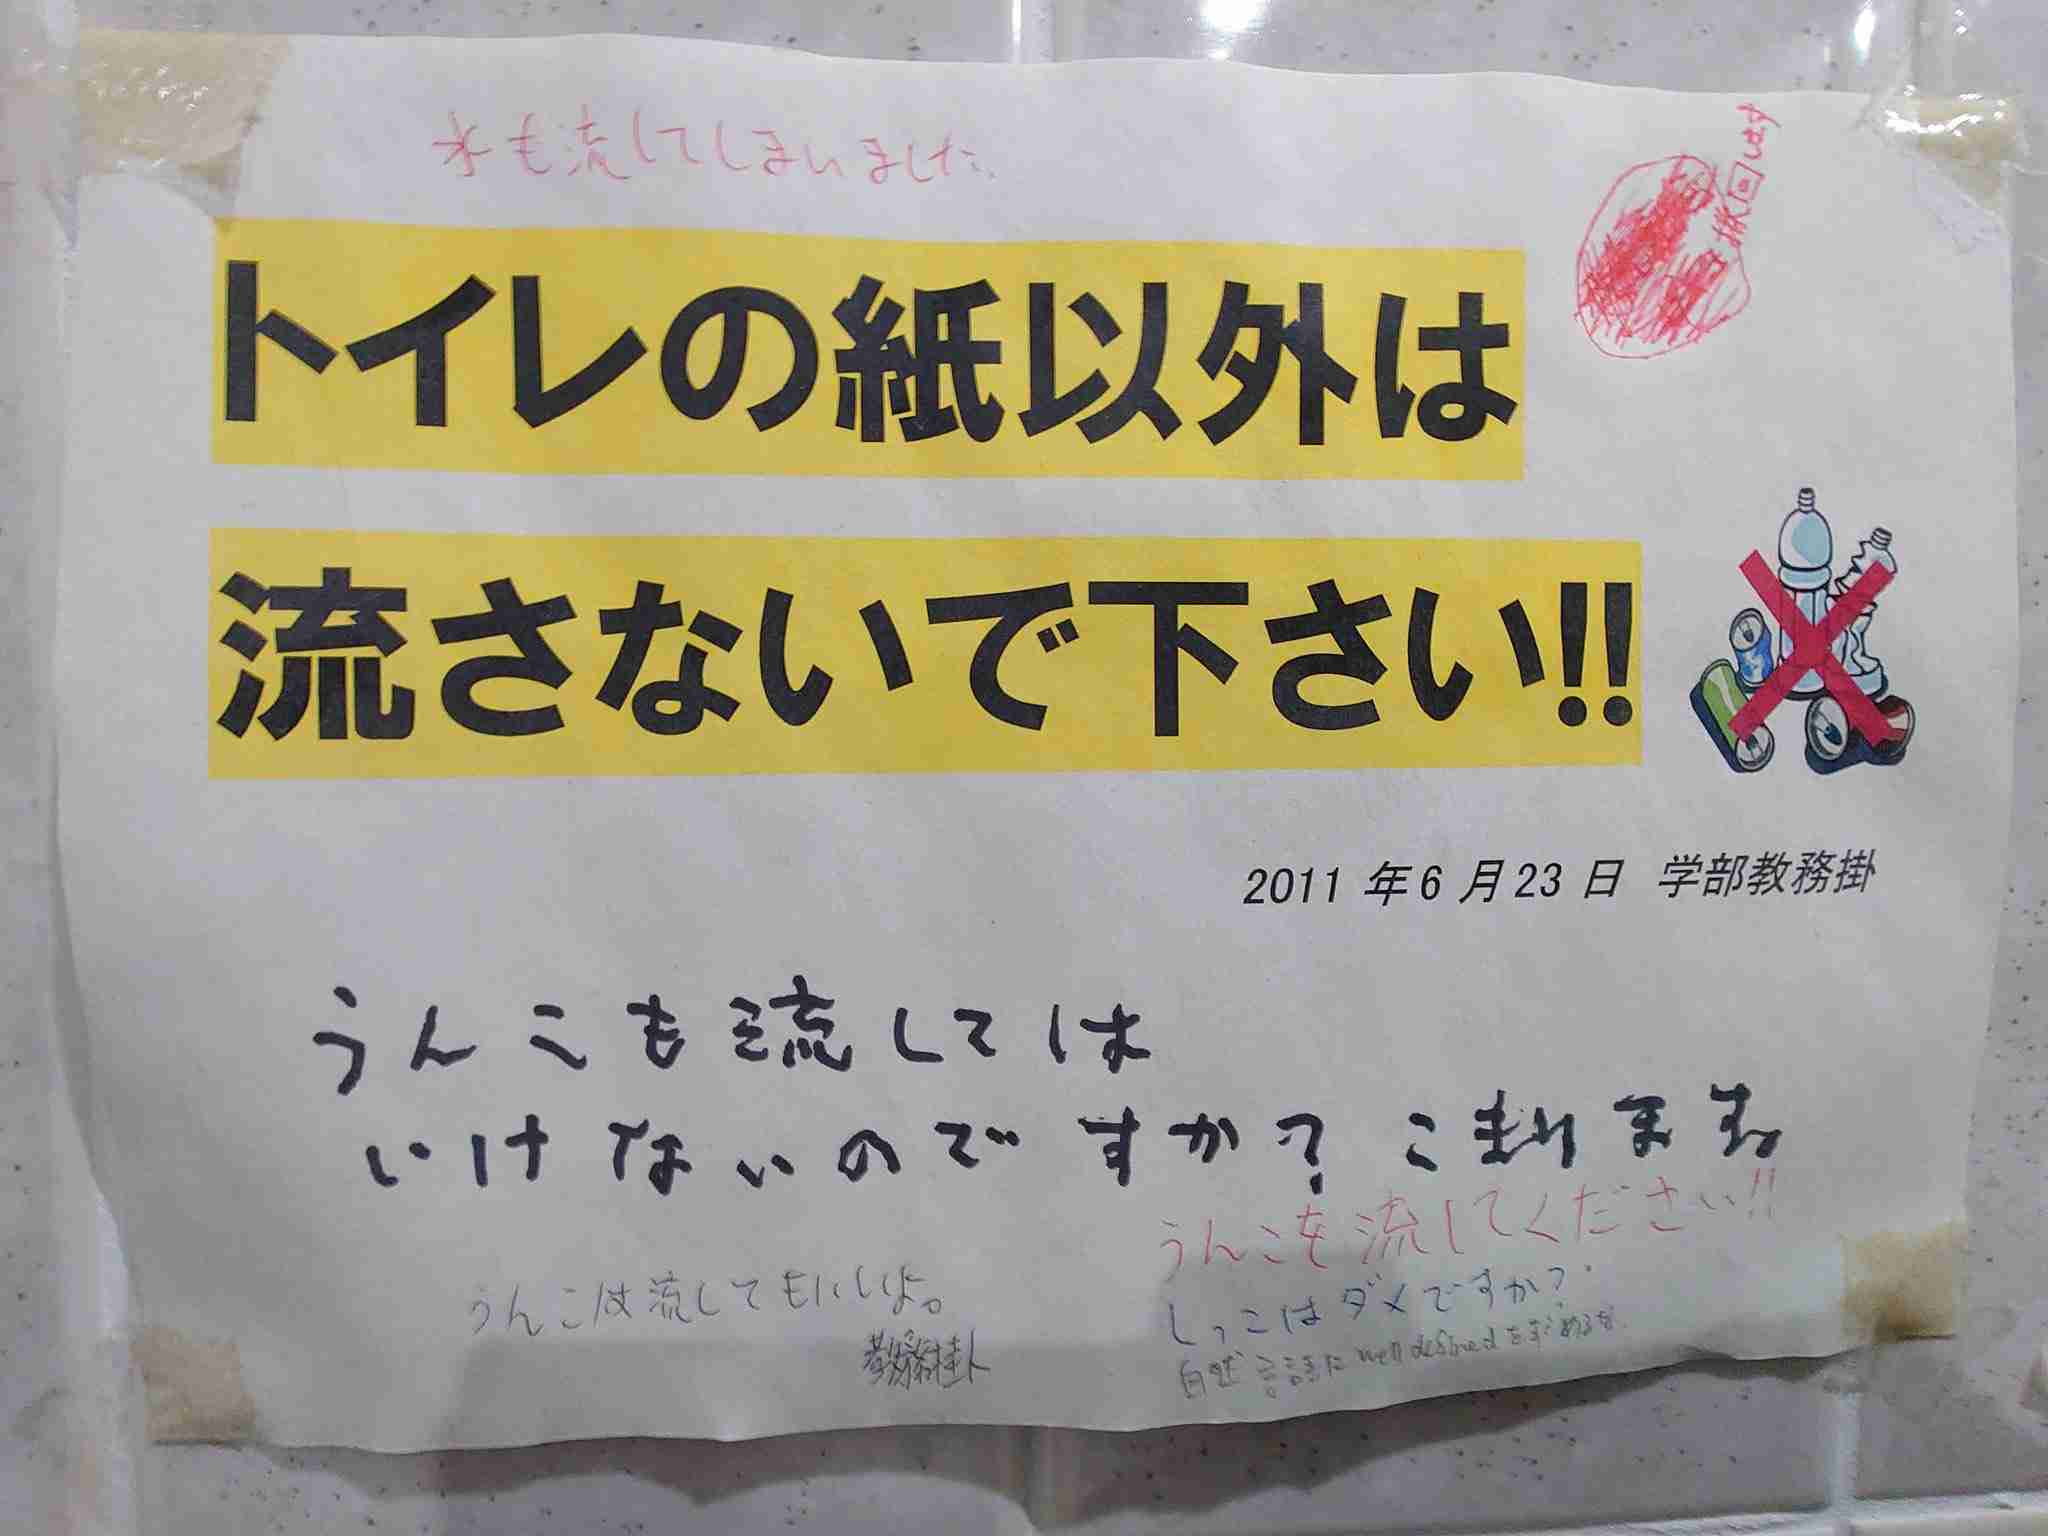 水も流してしまいました。
撤回します
トイレの紙以外は
流さないで下さい!!
2011年6月23日 学部教務掛
うんこも流しては
いけないのですか?こまります。
うんこを流してください!!
うんこは流してもいいよ。
教務掛
しっこはダメですか?
自然言語に well defined を求めるな.